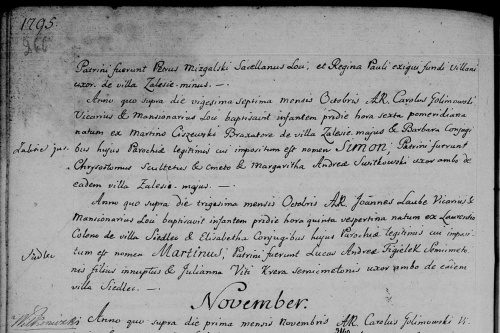 1795.
266
Patrini fuerunt Petrus Mizgalski Sacellanus Lou: et Regina Pauli exiqui fundi Villani
uxor. de villa Zalesie minus. —
Anno quo supra die vigesima septima mensis Octobris A.R. Carolus Golimowski
Vicarius & Mansionarius Lou baptisavit infantem pridie hora sexta pomeridiana
natum ex Martino Ciszewski Braxatore de villa Zalesie majus & Barbara Conjugi
Zalesie
bus hujus Parochiæ legitimis cui impositum est nomen Simon; Patrini fuerunt
Chrysostomus Scultetus & cmeto & Margaritha Andreæ Switkowski uxor ambo de
eadem villa Zalesie majus. —
Anno quo supra die trigesima mensis Octobris A.R. Joannes Laube Vicarius &
Mansionarius Lou baptisavit infantem pridie hora quinta vespertina natum ex Laurentio
Colono de villa Siedlec & Elisabetha Conjugibus hujus Parochiæ legitimis cui imposi
Siedlec
tum est nomen Martinus, Patrini fuerunt Lucas Andreæ Figielek Semicmeto
nis filius innuptus & Julianna Viti Krera semicmetonis uxor ambo de eadem
villa Siedlec. —
November.
Anno quo supra die prima mensis Novembris A.R. Carolus Golimowski Vi.